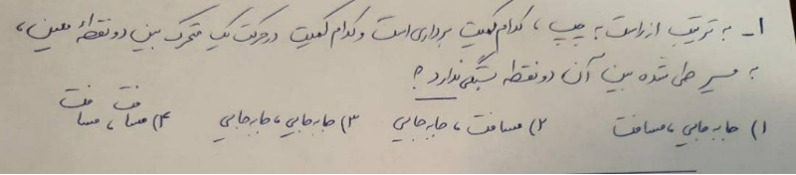 ۱ـ به ترتیب از راست به چپ، کدام کمیت برداری است و کدام کمیت در حرکت یک متحرک بین دو نقطهٔ معین،
به مسیر طی شده بین آن دو نقطه بستگی ندارد؟
۱) جابه‌جایی، مسافت ۲) مسافت، جابه‌جایی ۳) جابه‌جایی، جابه‌جایی ۴) مسافت، مسافت